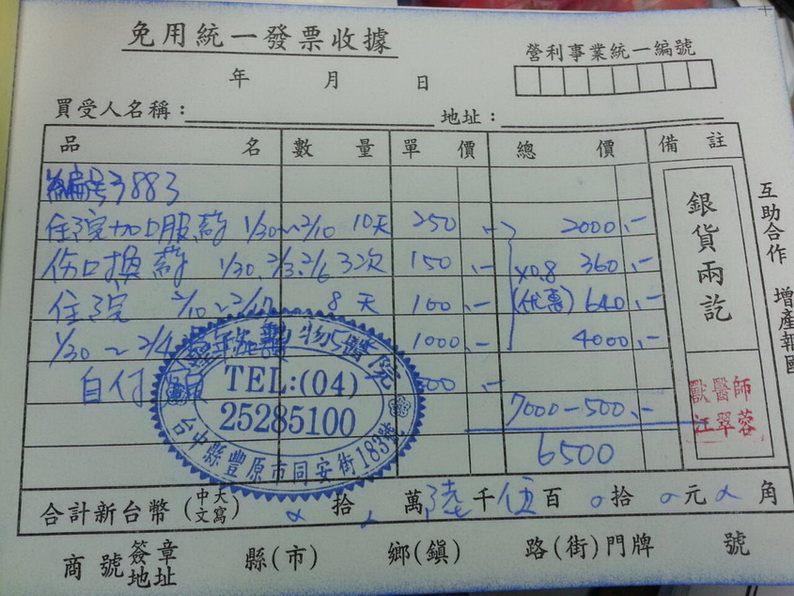 免用統一發票收據
營利事業統一編號
年 月 日
買受人名稱： 地址：
品 名 數 量 單 價 總 價 備 註
編号3883
住院加口服藥 1/30~2/10 10天 250.- 2000.-
伤口換藥 1/30.2/3.2/6 3次 150.- ×0.8 360.-
住院 2/10~2/17 8天 100.- (优惠) 640.-
1/30~2/4 1000.- 4000.-
自付額 500.-
7000-500.-
6500
銀貨兩訖
獸醫師
江翠蓉
互助合作 增產報國
動物醫院
TEL:(04)
25285100
台中縣豐原市同安街183號
合計新台幣(中文大寫) 拾 萬 陸 千 伍 百 0 拾 元 角
商號簽章地址 縣(市) 鄉(鎮) 路(街)門牌 號